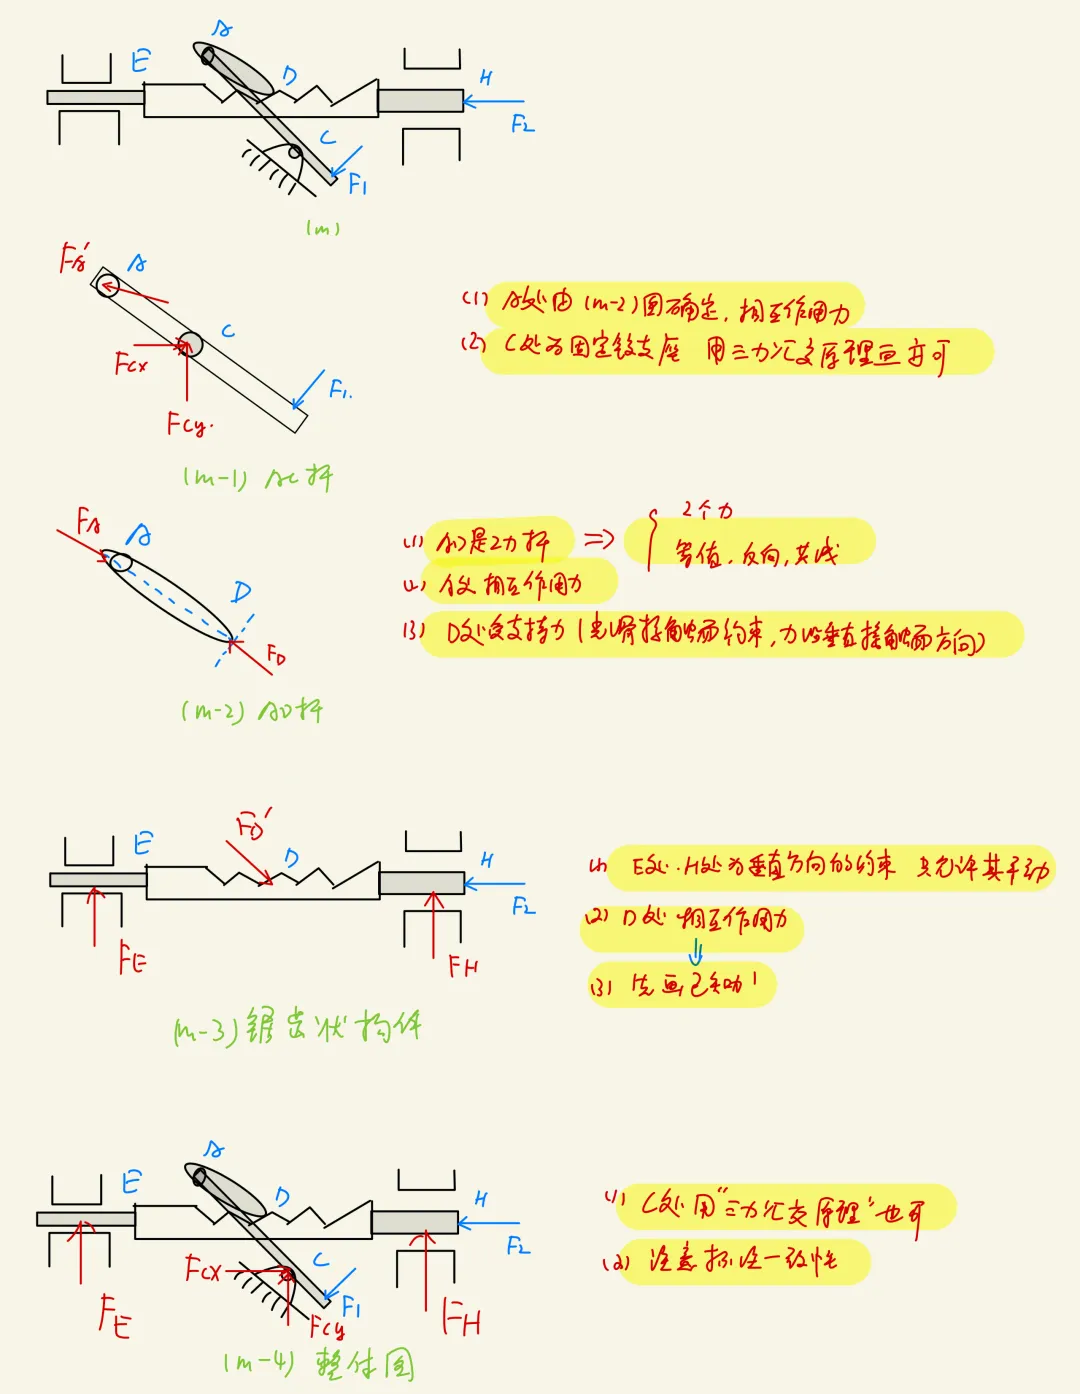 A
E
D
H
F₂
C
F₁
(m)
FA'
A
C
Fcx
F₁.
Fcy.
(m-1) AC杆
(1) A处由(m-2)图确定，相互作用力
(2) C处为固定铰支座 用三力汇交原理画亦可
FA
A
D
FD
(m-2) AD杆
(1) AD是2力杆 ⇒ { 2个力
等值、反向，共线
(2) A处相互作用力
(3) D处受支持力(光滑接触面约束，力必垂直接触面方向)
FD'
E
D
H
F₂
FE
FH
(m-3) 锯齿状构件
(1) E处、H处为垂直方向的约束 只允许其平动
(2) D处相互作用力
⇓
(3) 先画已知力!
A
E
D
H
F₂
C
Fcx
F₁
Fcy
FE
FH
(m-4) 整体图
(1) C处用"三力汇交原理"也可
(2) 注意标注一致性